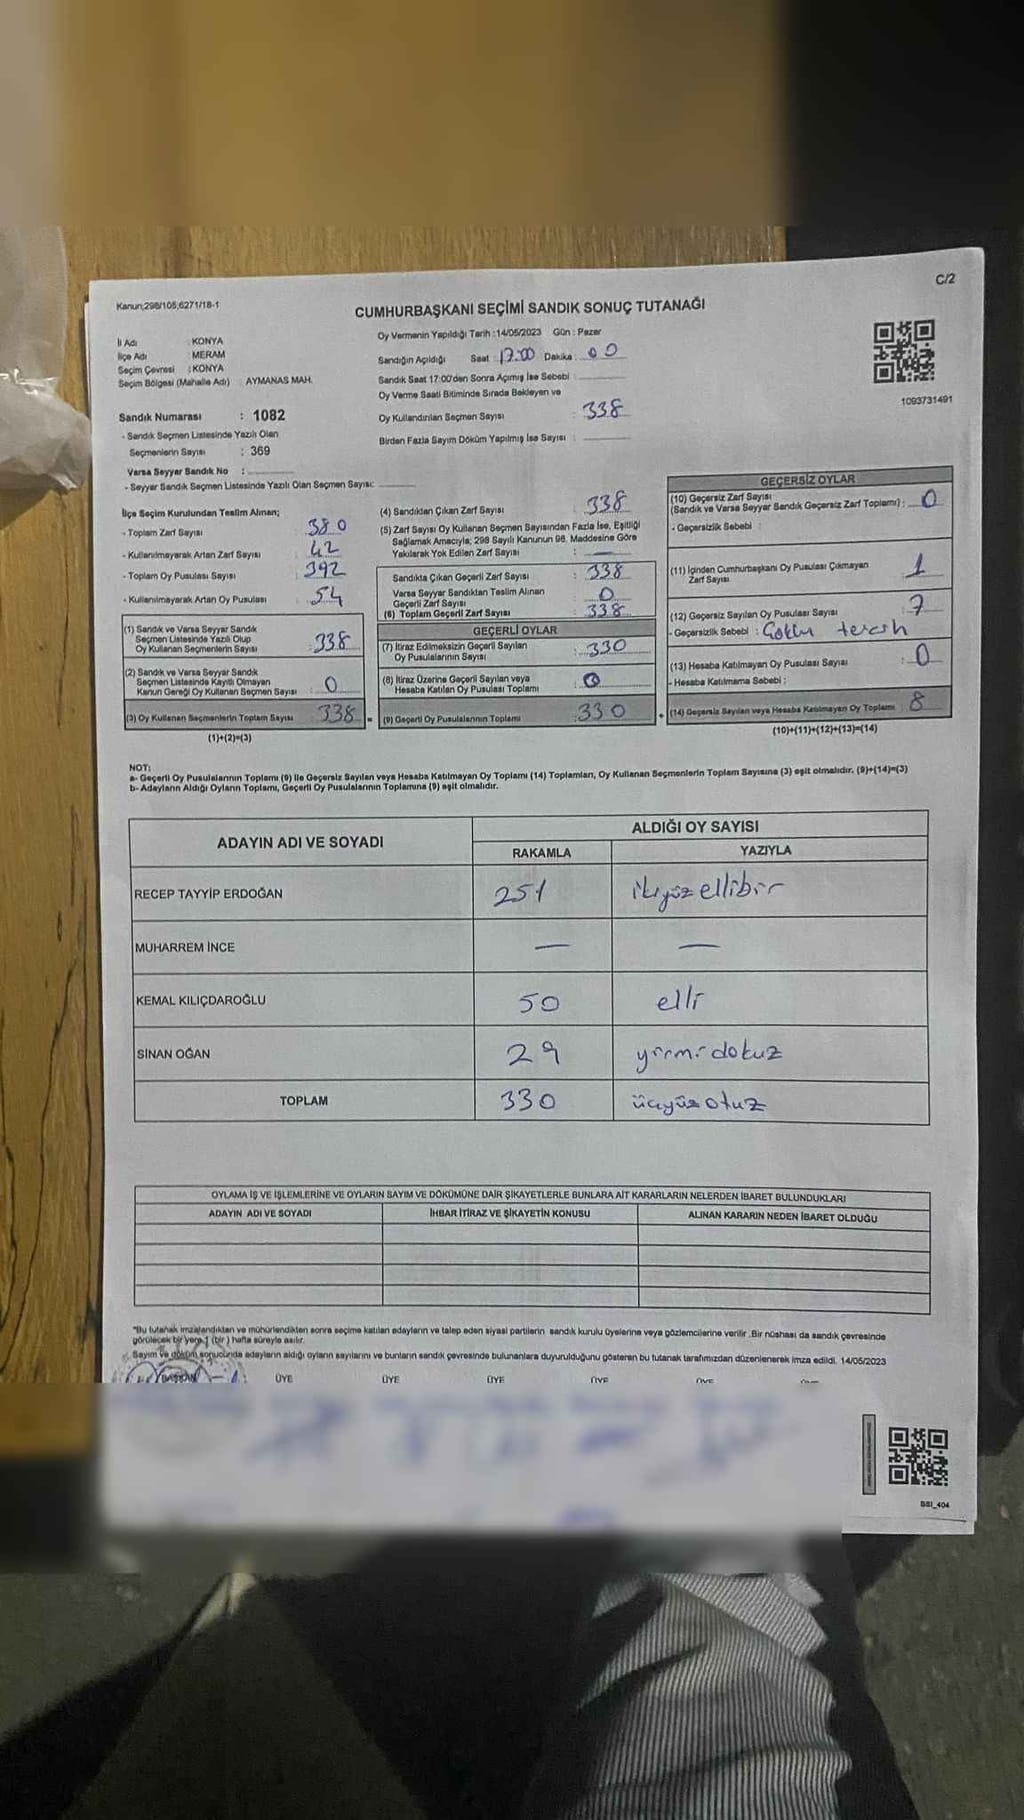 C/2
Kanun;298/105;6271/18-1
CUMHURBAŞKANI SEÇİMİ SANDIK SONUÇ TUTANAĞI
İl Adı : KONYA
İlçe Adı : MERAM
Seçim Çevresi : KONYA
Seçim Bölgesi (Mahalle Adı) : AYMANAS MAH.
Oy Vermenin Yapıldığı Tarih :14/05/2023 Gün : Pazar
Sandığın Açıldığı Saat : 17:00 Dakika : 00
Sandık Saat 17:00'den Sonra Açımış İse Sebebi :
Oy Verme Saati Bitiminde Sırada Bekleyen ve
Oy Kullandırılan Seçmen Sayısı : 338
Birden Fazla Sayım Döküm Yapılmış İse Sayısı :
1093731491
Sandık Numarası : 1082
- Sandık Seçmen Listesinde Yazılı Olan
Seçmenlerin Sayısı : 369
Varsa Seyyar Sandık No :
- Seyyar Sandık Seçmen Listesinde Yazılı Olan Seçmen Sayısı:
İlçe Seçim Kurulundan Teslim Alınan;
- Toplam Zarf Sayısı : 380
- Kullanılmayarak Artan Zarf Sayısı : 42
- Toplam Oy Pusulası Sayısı : 392
- Kullanılmayarak Artan Oy Pusulası : 54
(1) Sandık ve Varsa Seyyar Sandık
Seçmen Listesinde Yazılı Olup
Oy Kullanan Seçmenlerin Sayısı : 338
(2) Sandık ve Varsa Seyyar Sandık
Seçmen Listesinde Kayıtlı Olmayan
Kanun Gereği Oy Kullanan Seçmen Sayısı : 0
(3) Oy Kullanan Seçmenlerin Toplam Sayısı : 338 =
(1)+(2)=(3)
(4) Sandıktan Çıkan Zarf Sayısı : 338
(5) Zarf Sayısı Oy Kullanan Seçmen Sayısından Fazla İse, Eşitliği
Sağlamak Amacıyla; 298 Sayılı Kanunun 98. Maddesine Göre
Yakılarak Yok Edilen Zarf Sayısı : —
Sandıkta Çıkan Geçerli Zarf Sayısı : 338
Varsa Seyyar Sandıktan Teslim Alınan
Geçerli Zarf Sayısı : 0
(6) Toplam Geçerli Zarf Sayısı : 338
GEÇERLİ OYLAR
(7) İtiraz Edilmeksizin Geçerli Sayılan
Oy Pusulalarının Sayısı : 330
(8) İtiraz Üzerine Geçerli Sayılan veya
Hesaba Katılan Oy Pusulası Toplamı : 0
(9) Geçerli Oy Pusulalarının Toplamı : 330 +
GEÇERSİZ OYLAR
(10) Geçersiz Zarf Sayısı
(Sandık ve Varsa Seyyar Sandık Geçersiz Zarf Toplamı) : 0
- Geçersizlik Sebebi :
(11) İçinden Cumhurbaşkanı Oy Pusulası Çıkmayan
Zarf Sayısı : 1
(12) Geçersiz Sayılan Oy Pusulası Sayısı : 7
- Geçersizlik Sebebi :
(13) Hesaba Katılmayan Oy Pusulası Sayısı : 0
- Hesaba Katılmama Sebebi :
(14) Geçersiz Sayılan veya Hesaba Katılmayan Oy Toplamı : 8
(10)+(11)+(12)+(13)=(14)
NOT:
a- Geçerli Oy Pusulalarının Toplamı (9) ile Geçersiz Sayılan veya Hesaba Katılmayan Oy Toplamı (14) Toplamları, Oy Kullanan Seçmenlerin Toplam Sayısına (3) eşit olmalıdır. (9)+(14)=(3)
b- Adayların Aldığı Oyların Toplamı, Geçerli Oy Pusulalarının Toplamına (9) eşit olmalıdır.
ADAYIN ADI VE SOYADI
ALDIĞI OY SAYISI
RAKAMLA YAZIYLA
RECEP TAYYİP ERDOĞAN 251 ikiyüzellibir
MUHARREM İNCE — —
KEMAL KILIÇDAROĞLU 50 elli
SİNAN OĞAN 29 yirmidokuz
TOPLAM 330 üçyüzotuz
OYLAMA İŞ VE İŞLEMLERİNE VE OYLARIN SAYIM VE DÖKÜMÜNE DAİR ŞİKAYETLERLE BUNLARA AİT KARARLARIN NELERDEN İBARET BULUNDUKLARI
ADAYIN ADI VE SOYADI İHBAR İTİRAZ VE ŞİKAYETİN KONUSU ALINAN KARARIN NEDEN İBARET OLDUĞU
"Bu tutanak imzalandıktan ve mühürlendikten sonra seçime katılan adayların ve talep eden siyasi partilerin sandık kurulu üyelerine veya gözlemcilerine verilir .Bir nüshası da sandık çevresinde
görülecek bir yere 1 (bir ) hafta süreyle asılır.
Sayım ve döküm sonucunda adayların aldığı oyların sayılarını ve bunların sandık çevresinde bulunanlara duyurulduğunu gösteren bu tutanak tarafımızdan düzenlenerek imza edildi. 14/05/2023
BAŞKAN ÜYE ÜYE ÜYE ÜYE ÜYE
BSI_404